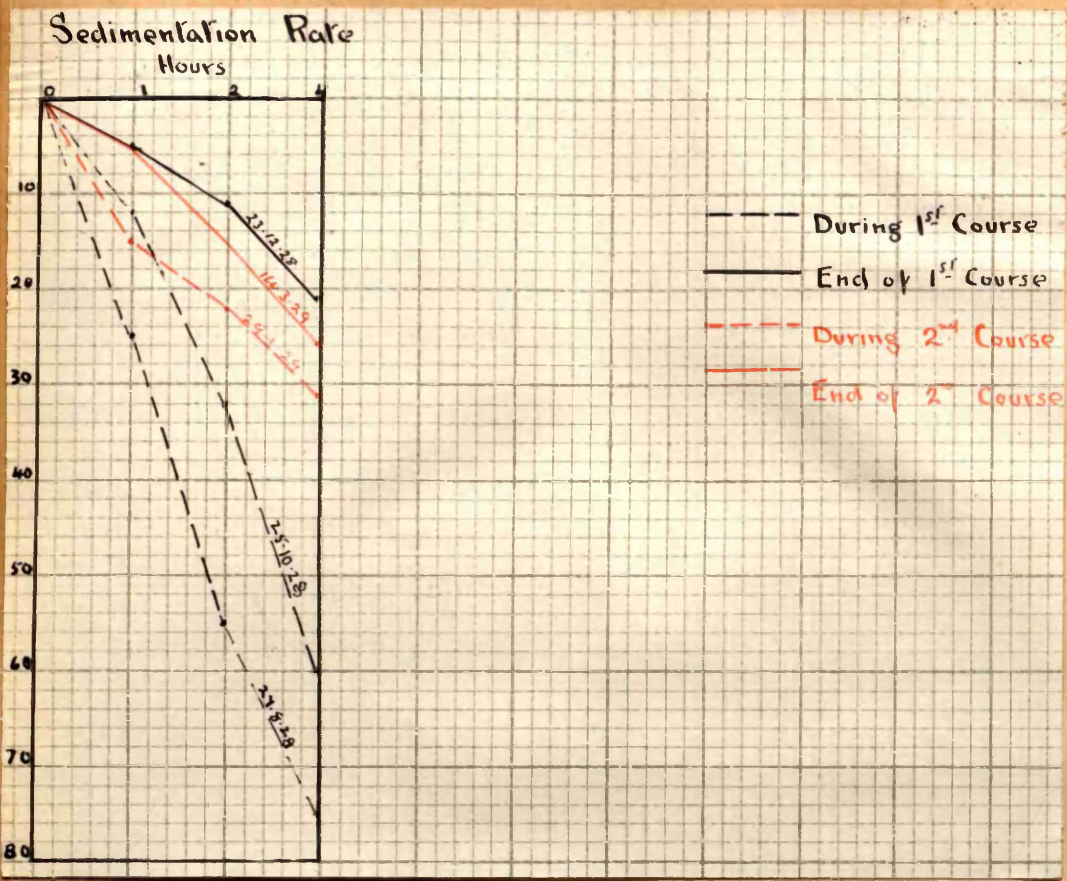 Sedimentation Rate
Hours
0 1 2 4
10
20
30
40
50
60
70
80
23.12.28
14.3.29
25.10.28
27.8.28
During 1st Course
End of 1st Course
During 2nd Course
End of 2nd Course